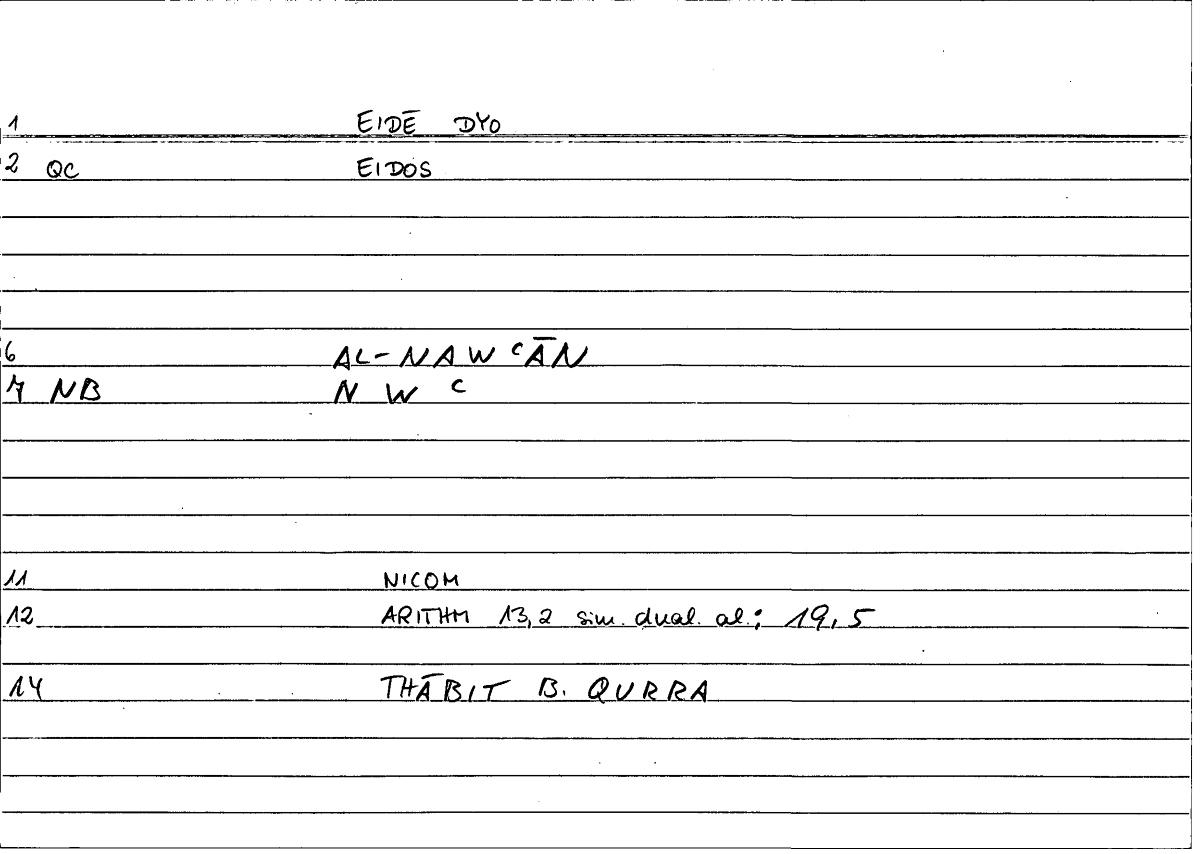 1 EIDĒ DYO
2 QC EIDOS
6 AL-NAWᶜĀN
7 NB N W ᶜ
11 NICOM
12 ARITHM 13,2 sim. dual. al.; 19,5
14 THĀBIT B. QURRA